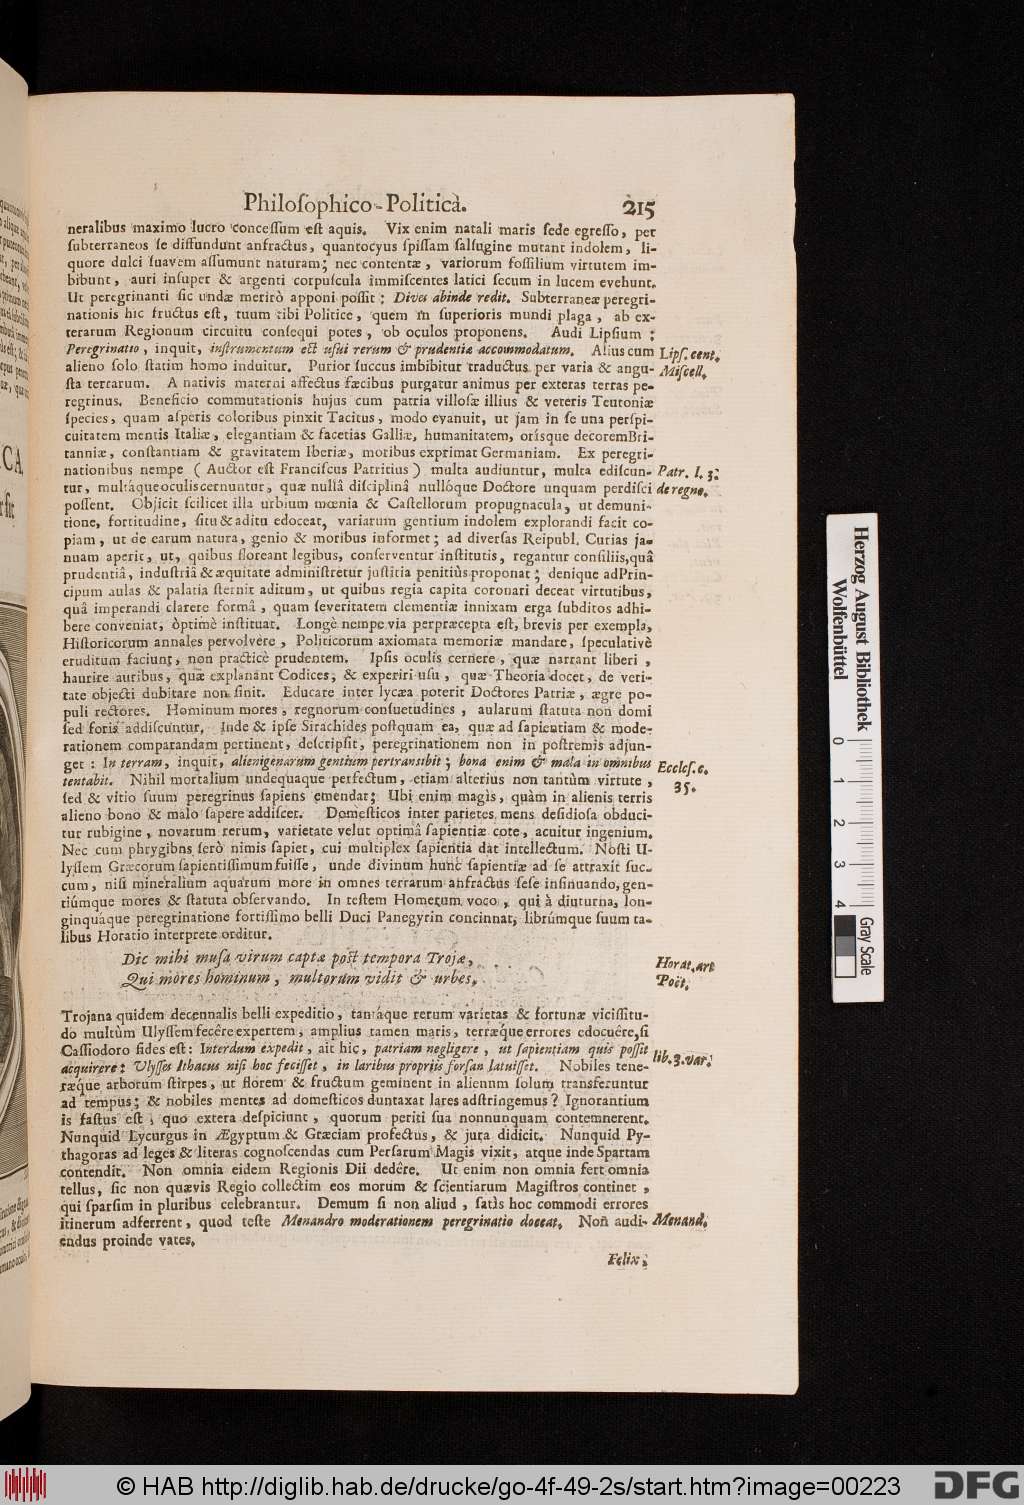 Philoſophico-Politicà. 215
neralibus maximo lucro conceſſum eſt aquis. Vix enim natali maris ſede egreſſo, per
ſubterraneos ſe diffundunt anfractus, quantocyus ſpiſſam ſalſugine mutant indolem, li-
quore dulci ſuavem aſſumunt naturam; nec contentæ, variorum foſſilium virtutem im-
bibunt, auri inſuper & argenti corpuſcula immiſcentes latici ſecum in lucem evehunt.
Ut peregrinanti ſic undæ meritò apponi poſſit: Dives abinde redit. Subterraneæ peregri-
nationis hic fructus eſt, tuum tibi Politice, quem in ſuperioris mundi plaga, ab ex-
terarum Regionum circuitu conſequi potes, ob oculos proponens. Audi Lipſium:
Peregrinatio, inquit, inſtrumentum eſt uſui rerum & prudentiæ accommodatum. Alius cum Lipſ. cent.
alieno ſolo ſtatim homo induitur. Purior ſuccus imbibitur traductus per varia & angu- Miſcell.
ſta terrarum. A nativis materni affectus fæcibus purgatur animus per exteras terras pe-
regrinus. Beneficio commutationis hujus cum patria villoſæ illius & veteris Teutoniæ
ſpecies, quam aſperis coloribus pinxit Tacitus, modo evanuit, ut jam in ſe una perſpi-
cuitatem mentis Italiæ, elegantiam & facetias Galliæ, humanitatem, orísque decorem Bri-
tanniæ, conſtantiam & gravitatem Iberiæ, moribus exprimat Germaniam. Ex peregri-
nationibus nempe (Auctor eſt Franciſcus Patritius) multa audiuntur, multa ediſcun- Patr. l. 3.
tur, multáque oculis cernuntur, quæ nullâ diſciplinâ nullóque Doctore unquam perdiſci de regno.
poſſent. Objicit ſcilicet illa urbium mœnia & Caſtellorum propugnacula, ut demuni-
tione, fortitudine, ſitu & aditu edoceat, variarum gentium indolem explorandi facit co-
piam, ut de earum natura, genio & moribus informet; ad diverſas Reipubl. Curias ja-
nuam aperit, ut, quibus floreant legibus, conſerventur inſtitutis, regantur conſiliis, quâ
prudentiâ, induſtriâ & æquitate adminiſtretur juſtitia penitiùs proponat; denique ad Prin-
cipum aulas & palatia ſternit aditum, ut quibus regia capita coronari deceat virtutibus,
quâ imperandi clarere formâ, quam ſeveritatem clementiæ innixam erga ſubditos adhi-
bere conveniat, òptimè inſtituat. Longè nempe via per præcepta eſt, brevis per exempla,
Hiſtoricorum annales pervolvere, Politicorum axiomata memoriæ mandare, ſpeculativè
eruditum faciunt, non practicè prudentem. Ipſis oculis cernere, quæ narrant liberi,
haurire auribus, quæ explanant Codices, & experiri uſu, quæ Theoria docet, de veri-
tate objecti dubitare non ſinit. Educare inter lycæa poterit Doctores Patriæ, ægre po-
puli rectores. Hominum mores, regnorum conſuetudines, aularum ſtatuta non domi
ſed foris addiſcuntur. Inde & ipſe Sirachides poſtquam ea, quæ ad ſapientiam & mode-
rationem comparandam pertinent, deſcripſit, peregrinationem non in poſtremis adjun-
get: In terram, inquit, alienigenarum gentium pertranſibit; bona enim & mala in omnibus Eccleſ. c.
tentabit. Nihil mortalium undequaque perfectum, etiam alterius non tantùm virtute, 35.
ſed & vitio ſuum peregrinus ſapiens emendat; Ubi enim magis, quàm in alienis terris
alieno bono & malo ſapere addiſcet. Domeſticos inter parietes mens deſidioſa obduci-
tur rubigine, novarum rerum, varietate velut optimâ ſapientiæ cote, acuitur ingenium.
Nec cum phrygibns ſerò nimis ſapiet, cui multiplex ſapientia dat intellectum. Noſti U-
lyſſem Græcorum ſapientiſſimum fuiſſe, unde divinum hunc ſapientiæ ad ſe attraxit ſuc-
cum, niſi mineralium aquarum more in omnes terrarum anfractus ſeſe inſinuando, gen-
tiúmque mores & ſtatuta obſervando. In teſtem Homerum voco, qui à diuturna, lon-
ginquáque peregrinatione fortiſſimo belli Duci Panegyrin concinnat, librúmque ſuum ta-
libus Horatio interprete orditur.
Dic mihi muſa virum captæ poſt tempora Trojæ, Horat. art
Qui mores hominum, multorum vidit & urbes. Poët.
Trojana quidem decennalis belli expeditio, tantáque rerum varietas & fortunæ viciſſitu-
do multùm Ulyſſem fecêre expertem, amplius tamen maris, terræque errores edocuére, ſi
Caſſiodoro fides eſt: Interdum expedit, ait hic, patriam negligere, ut ſapientiam quis poſſit lib. 3. var.
acquirere: Ulyſſes Ithacus niſi hoc feciſſet, in laribus propriis forſan latuiſſet. Nobiles tene-
ræque arborum ſtirpes, ut florem & fructum geminent in alienum ſolum transferuntur
ad tempus; & nobiles mentes ad domeſticos duntaxat lares adſtringemus? Ignorantium
is faſtus eſt, quo extera deſpiciunt, quorum periti ſua nonnunquam contemnerent.
Nunquid Lycurgus in Ægyptum & Græciam profectus, & jura didicit. Nunquid Py-
thagoras ad leges & literas cognoſcendas cum Perſarum Magis vixit, atque inde Spartam
contendit. Non omnia eidem Regionis Dii dedêre. Ut enim non omnia fert omnia
tellus, ſic non quævis Regio collectim eos morum & ſcientiarum Magiſtros continet,
qui ſparſim in pluribus celebrantur. Demum ſi non aliud, ſatis hoc commodi errores
itinerum adferrent, quod teſte Menandro moderationem peregrinatio doceat. Non audi- Menand.
endus proinde vates.
Felix,
Herzog August Bibliothek
Wolfenbüttel
0 1 2 3 4
Gray Scale
© HAB http://diglib.hab.de/drucke/go-4f-49-2s/start.htm?image=00223
DFG